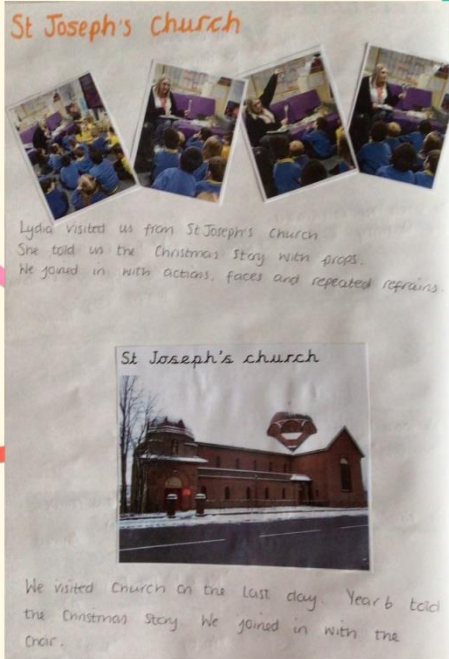 St Joseph's Church
Lydia visited us from St Joseph's Church
She told us the Christmas Story with props.
We joined in with actions, faces and repeated refrains.
St Joseph's church
We visited Church on the last day. Year 6 told
the Christmas Story. We joined in with the
Choir.